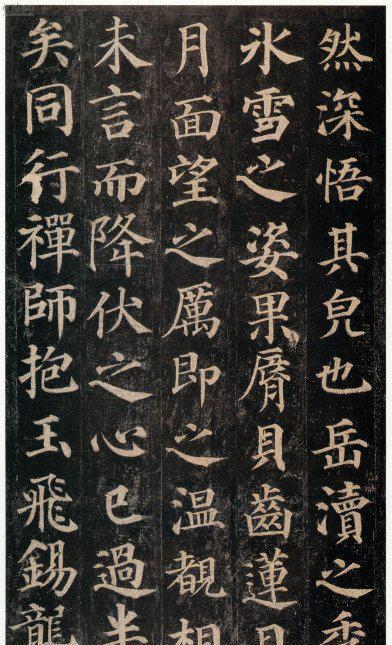 然深悟其皃也岳瀆之秀
氷雪之姿果脣貝齒蓮目
月面望之厲即之温覩相
未言而降伏之心已過半
矣同行禪師抱玉飛錫龍